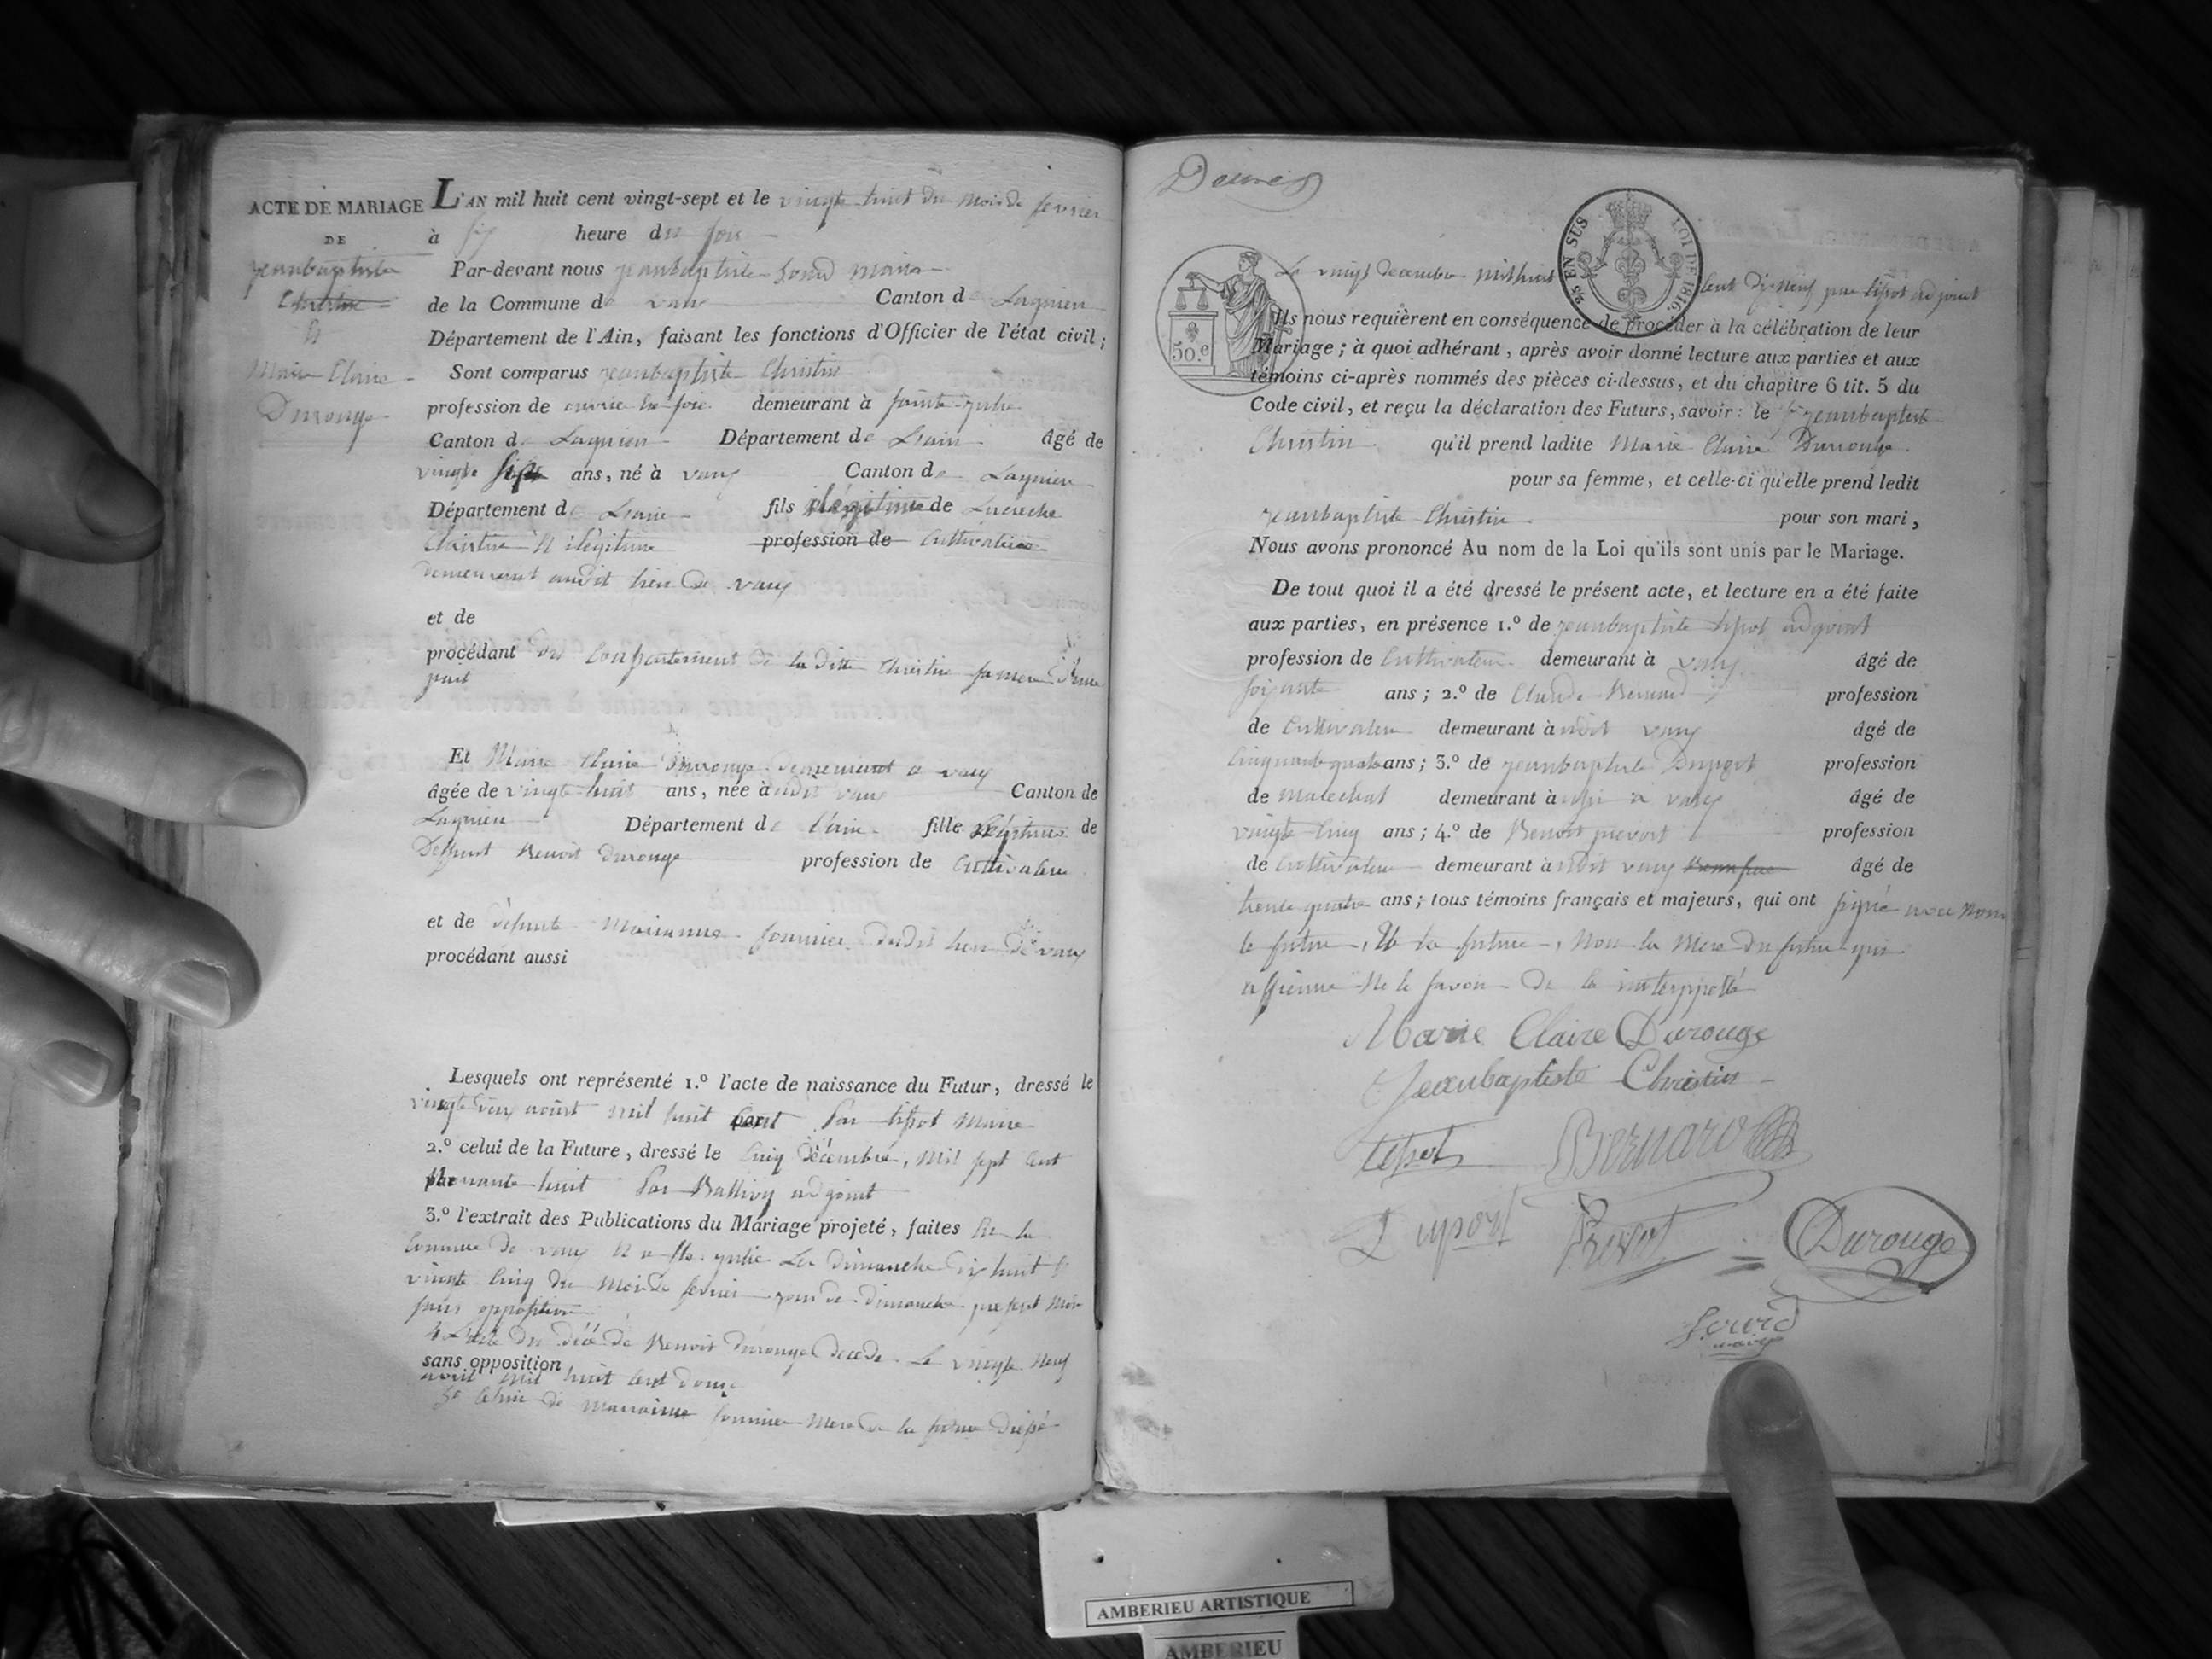 ACTE DE MARIAGE
DE
jeanbaptiste
Christin
Et
Marie Claire
Durouge
L'AN mil huit cent vingt-sept et le vingt huit du mois de fevrier
à six heure du soir
Par-devant nous jeanbaptiste maire
de la Commune de vaux Canton de Lagnieu
Département de l'Ain, faisant les fonctions d'Officier de l'état civil;
Sont comparus jeanbaptiste Christin
profession de demeurant à sainte julie
Canton de Lagnieu Département de Lain âgé de
vingt ans, né à vaux Canton de Lagnieu
Département de Lain fils de
Christin Et ilégitime profession de Cultivatrice
demeurant audit lieu de vaux
et de
procédant du Consentement de la ditte Christin sa mere d'une
part
Et Marie Claire Durouge demeurant a vaux
âgée de vingt huit ans, née audit vaux Canton de
Lagnieu Département de l'ain fille légitime de
Deffunt Benoit durouge profession de Cultivateur
et de défunte Marianne fournier dudit lieu de vaux
procédant aussi
Lesquels ont représenté 1.º l'acte de naissance du Futur, dressé le
vingt deux aoust mil huit Cent Par tissot Maire
2.º celui de la Future, dressé le Cinq décembre, mil sept Cent
nonante huit Par Ballivy adjoint
3.º l'extrait des Publications du Mariage projeté, faites En la
Commune de vaux Et a Ste julie Les dimanche dix huit Et
vingt Cinq du mois de fevrier jour de dimanche
sans opposition
4 L'acte du décé de Benoit durouge décédé Le vingt neuf
sans opposition
avril mil huit Cent douze
5º Celui de Marianne fournier Mere de la future
Le vingt decembre mil huit Cent dix neuf par tissot adjoint
50.c
25 EN SUS LOI DE 1816.
Ils nous requièrent en conséquence de procéder à la célébration de leur
Mariage; à quoi adhérant, après avoir donné lecture aux parties et aux
témoins ci-après nommés des pièces ci-dessus, et du chapitre 6 tit. 5 du
Code civil, et reçu la déclaration des Futurs, savoir: le jeanbaptiste
Christin qu'il prend ladite Marie Claire Durouge
pour sa femme, et celle-ci qu'elle prend ledit
jeanbaptiste Christin pour son mari,
Nous avons prononcé Au nom de la Loi qu'ils sont unis par le Mariage.
De tout quoi il a été dressé le présent acte, et lecture en a été faite
aux parties, en présence 1.º de jeanbaptiste tissot adjoint
profession de Cultivateur demeurant à vaux âgé de
soixante ans; 2.º de Claude Bernard profession
de Cultivateur demeurant audit vaux âgé de
Cinquante quatre ans; 3.º de jeanbaptiste Dupont profession
de marechal demeurant aussi a vaux âgé de
vingt Cinq ans; 4.º de Benoit prevost profession
de Cultivateur demeurant audit vaux âgé de
trente quatre ans; tous témoins français et majeurs, qui ont signé avec nous
le futur, Et la future, Non la Mere du futur qui
a ffirme Ne le savoir de ce
Marie Claire Durouge
Jeanbaptiste Christin
tissot Bernard
Dupont Prevost Durouge
maire
AMBERIEU ARTISTIQUE
AMBERIEU